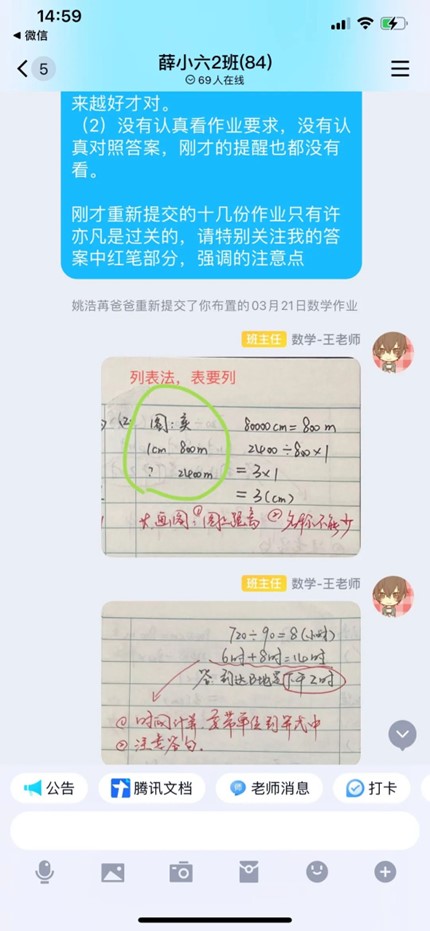 14:59
微信
5
薛小六2班(84)
69人在线
来越好才对。
（2）没有认真看作业要求，没有认
真对照答案，刚才的提醒也都没有
看。
刚才重新提交的十几份作业只有许
亦凡是过关的，请特别关注我的答
案中红笔部分，强调的注意点
姚浩苒爸爸重新提交了你布置的03月21日数学作业
班主任 数学-王老师
列表法，表要列
(2. 图:实 80000cm=800m
1cm 800m 2400÷800×1
? 2400m =3×1
=3(cm)
②名称不能少
班主任 数学-王老师
720÷90=8(小时)
6时+8时=14时
答:到达B地是下午2时
①时间计算,要带单位到算式中
②注意答句.
公告
腾讯文档
老师消息
打卡